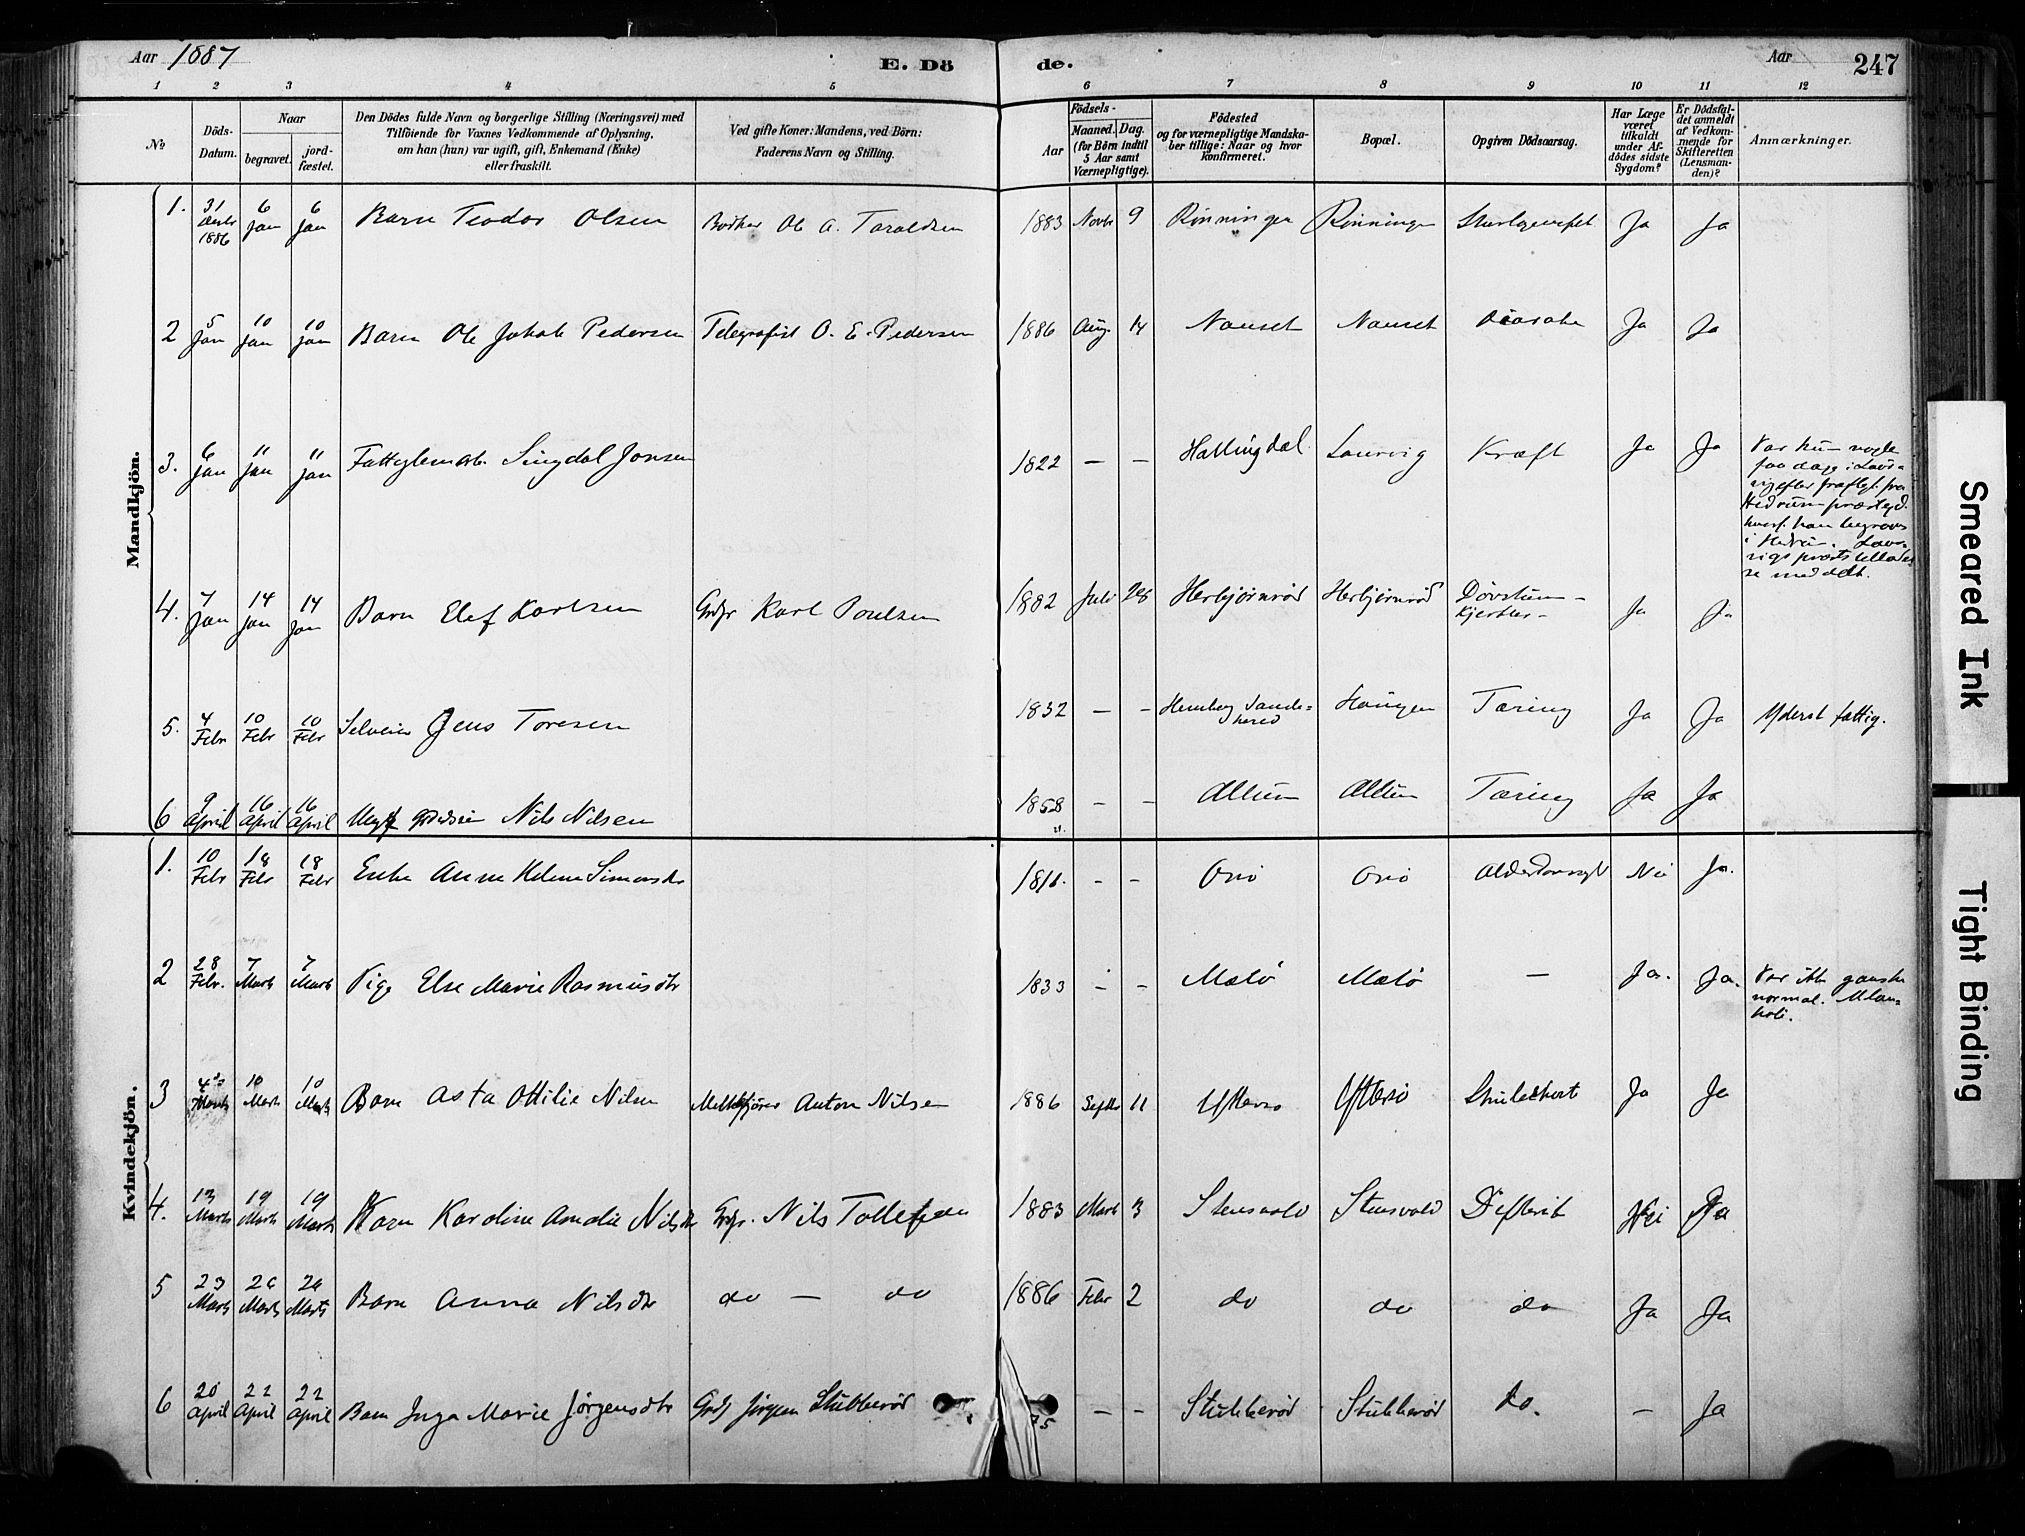 Aar 1887
E. Döde.
Aar
247
1 2 3 4 5 6 7 8 9 10 11 12
No
Döds-Datum.
Naar
begravet.
jordfæstet.
Den Dödes fulde Navn og borgerlige Stilling (Næringsvei) med
Tilföiende for Voxnes Vedkommende af Oplysning,
om han (hun) var ugift, gift, Enkemand (Enke)
eller fraskilt.
Ved gifte Koner: Mandens, ved Börn:
Faderens Navn og Stilling.
Födsels-
Aar
Maaned. Dag.
(for Börn indtil
5 Aar samt
Værnepligtige).
Födested
og for værnepligtige Mandska-
ber tillige: Naar og hvor
konfirmeret.
Bopæl.
Opgiven Dödsaarsag.
Har Læge
været
tilkaldt
under Af-
dödes sidste
Sygdom?
Er Dödsfal-
det anmeldt
af Vedkom-
mende for
Skifteretten
(Lensman-
den)?
Anmærkninger.
Mandkjön.
1. 31 Decbr 1886 6 Jan 6 Jan Barn Teodor Olsen Bødker Ole A. Taraldsen 1883 Novbr 9 Rønningen Rønningen Ja Ja
2 5 Jan 10 Jan 10 Jan Barn Ole Jakob Pedersen Telegrafist O. E. Pedersen 1886 Aug. 14 Nanset Nanset Ja Ja
3. 6 Jan 11 Jan 11 Jan Fattiglem Jonsen 1822 — — Hallingdal Laurvig Kræft Ja Ja
Var kun nogle
faa dage i Laur-
vig efter fra
Hedrum præstegd.
hvorf. han begraves
i Hedrum. Laur-
vigs præsts tilladel-
se meddelt.
4. 7 Jan 14 Jan 14 Jan Barn Elef Karlsen Grdbr Karl Poulsen 1882 Juli 28 Herbjørnrød Herbjørnrød Ja Ja
5. 4 Febr 10 Febr 10 Febr Selveier Jens Toresen 1832 — — Sande-
herred Haugen Tæring Ja Ja Yderst fattig.
6 9 April 16 April 16 April Nils Nilsen 1858 — — Allum Allum Tæring Ja Ja
Kvindekjön.
1. 10 Febr 18 Febr 18 Febr Enke Anne Helene Simonsdr 1811. - - Onø Onø Nei Ja.
2 28 Febr. 7 Marts 7 Marts Pige Else Marie Rasmusdtr 1833 - - Mælø Mælø — Ja. Ja.
Var ikke ganske
normal. Melan-
koli.
3 4de Marts 10 Marts 10 Marts Barn Asta Ottilie Nilsen Anton Nilsen 1886 Septbr 11 Yttersø Yttersø Ja Ja
4. 13 Marts 19 Marts 19 Marts Barn Karoline Amalie Nilsdtr Grdbr. Nils Tollefsen 1883 Marts 3 Stensvold Stensvold Difterit Nei Ja
5 23 Marts 26 Marts 26 Marts Barn Anna Nilsdtr do — do 1886 Febr 2 do do do Ja Ja
6 20 April 22 April 22 April Barn Inga Marie Jørgensdtr Grdbr Jørgen Stubberød 75 — — Stubberød Stubberød do. — Ja
Smeared Ink
Tight Binding